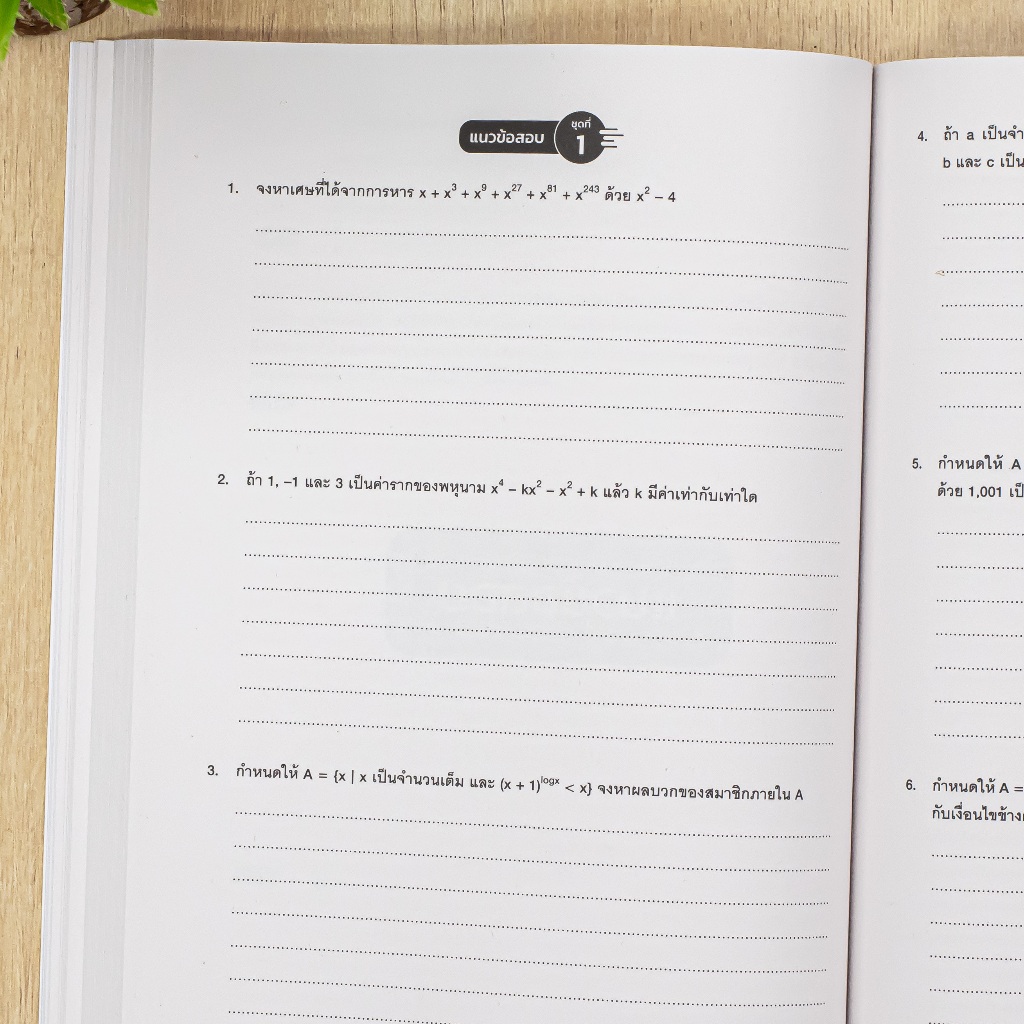 แนวข้อสอบ ชุดที่ 1
1. จงหาเศษที่ได้จากการหาร x + x³ + x⁹ + x²⁷ + x⁸¹ + x²⁴³ ด้วย x² – 4
2. ถ้า 1, –1 และ 3 เป็นค่ารากของพหุนาม x⁴ – kx² – x² + k แล้ว k มีค่าเท่ากับเท่าใด
3. กำหนดให้ A = {x | x เป็นจำนวนเต็ม และ (x + 1)^logx < x} จงหาผลบวกของสมาชิกภายใน A
4. ถ้า a เป็นจำ
b และ c เป็น
5. กำหนดให้ A
ด้วย 1,001 เป็
6. กำหนดให้ A =
กับเงื่อนไขข้าง